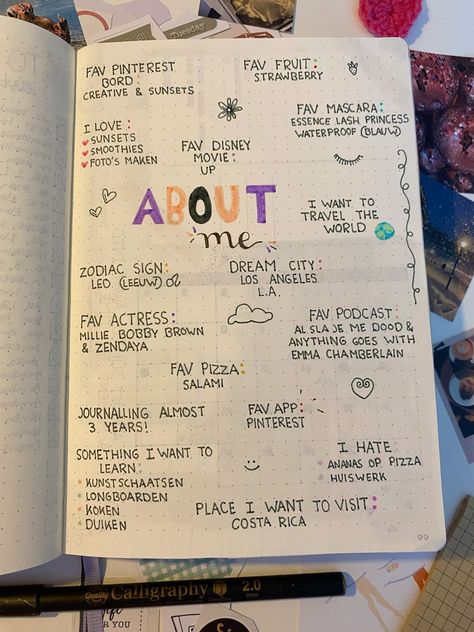 Tuesday
FAV PINTEREST
BORD:
CREATIVE & SUNSETS
FAV FRUIT:
STRAWBERRY
FAV MASCARA:
ESSENCE LASH PRINCESS
WATERPROOF (BLAUW)
I LOVE:
SUNSETS
SMOOTHIES
FOTO'S MAKEN
FAV DISNEY
MOVIE:
UP
ABOUT
me
I WANT TO
TRAVEL THE
WORLD
ZODIAC SIGN:
LEO (LEEUW) ♌
DREAM CITY:
LOS ANGELES
L.A.
FAV ACTRESS:
MILLIE BOBBY BROWN
& ZENDAYA
FAV PODCAST:
ALS LA JE ME DOOD &
ANYTHING GOES WITH
EMMA CHAMBERLAIN
FAV PIZZA:
SALAMI
JOURNALLING ALMOST
3 YEARS!
FAV APP:
PINTEREST
SOMETHING I WANT TO
LEARN:
KUNSTSCHAATSEN
LONGBOARDEN
KOKEN
DUIKEN
I HATE:
ANANAS OP PIZZA
HUISWERK
PLACE I WANT TO VISIT:
COSTA RICA
99
Quality Calligraphy 2.0
FOR YOU